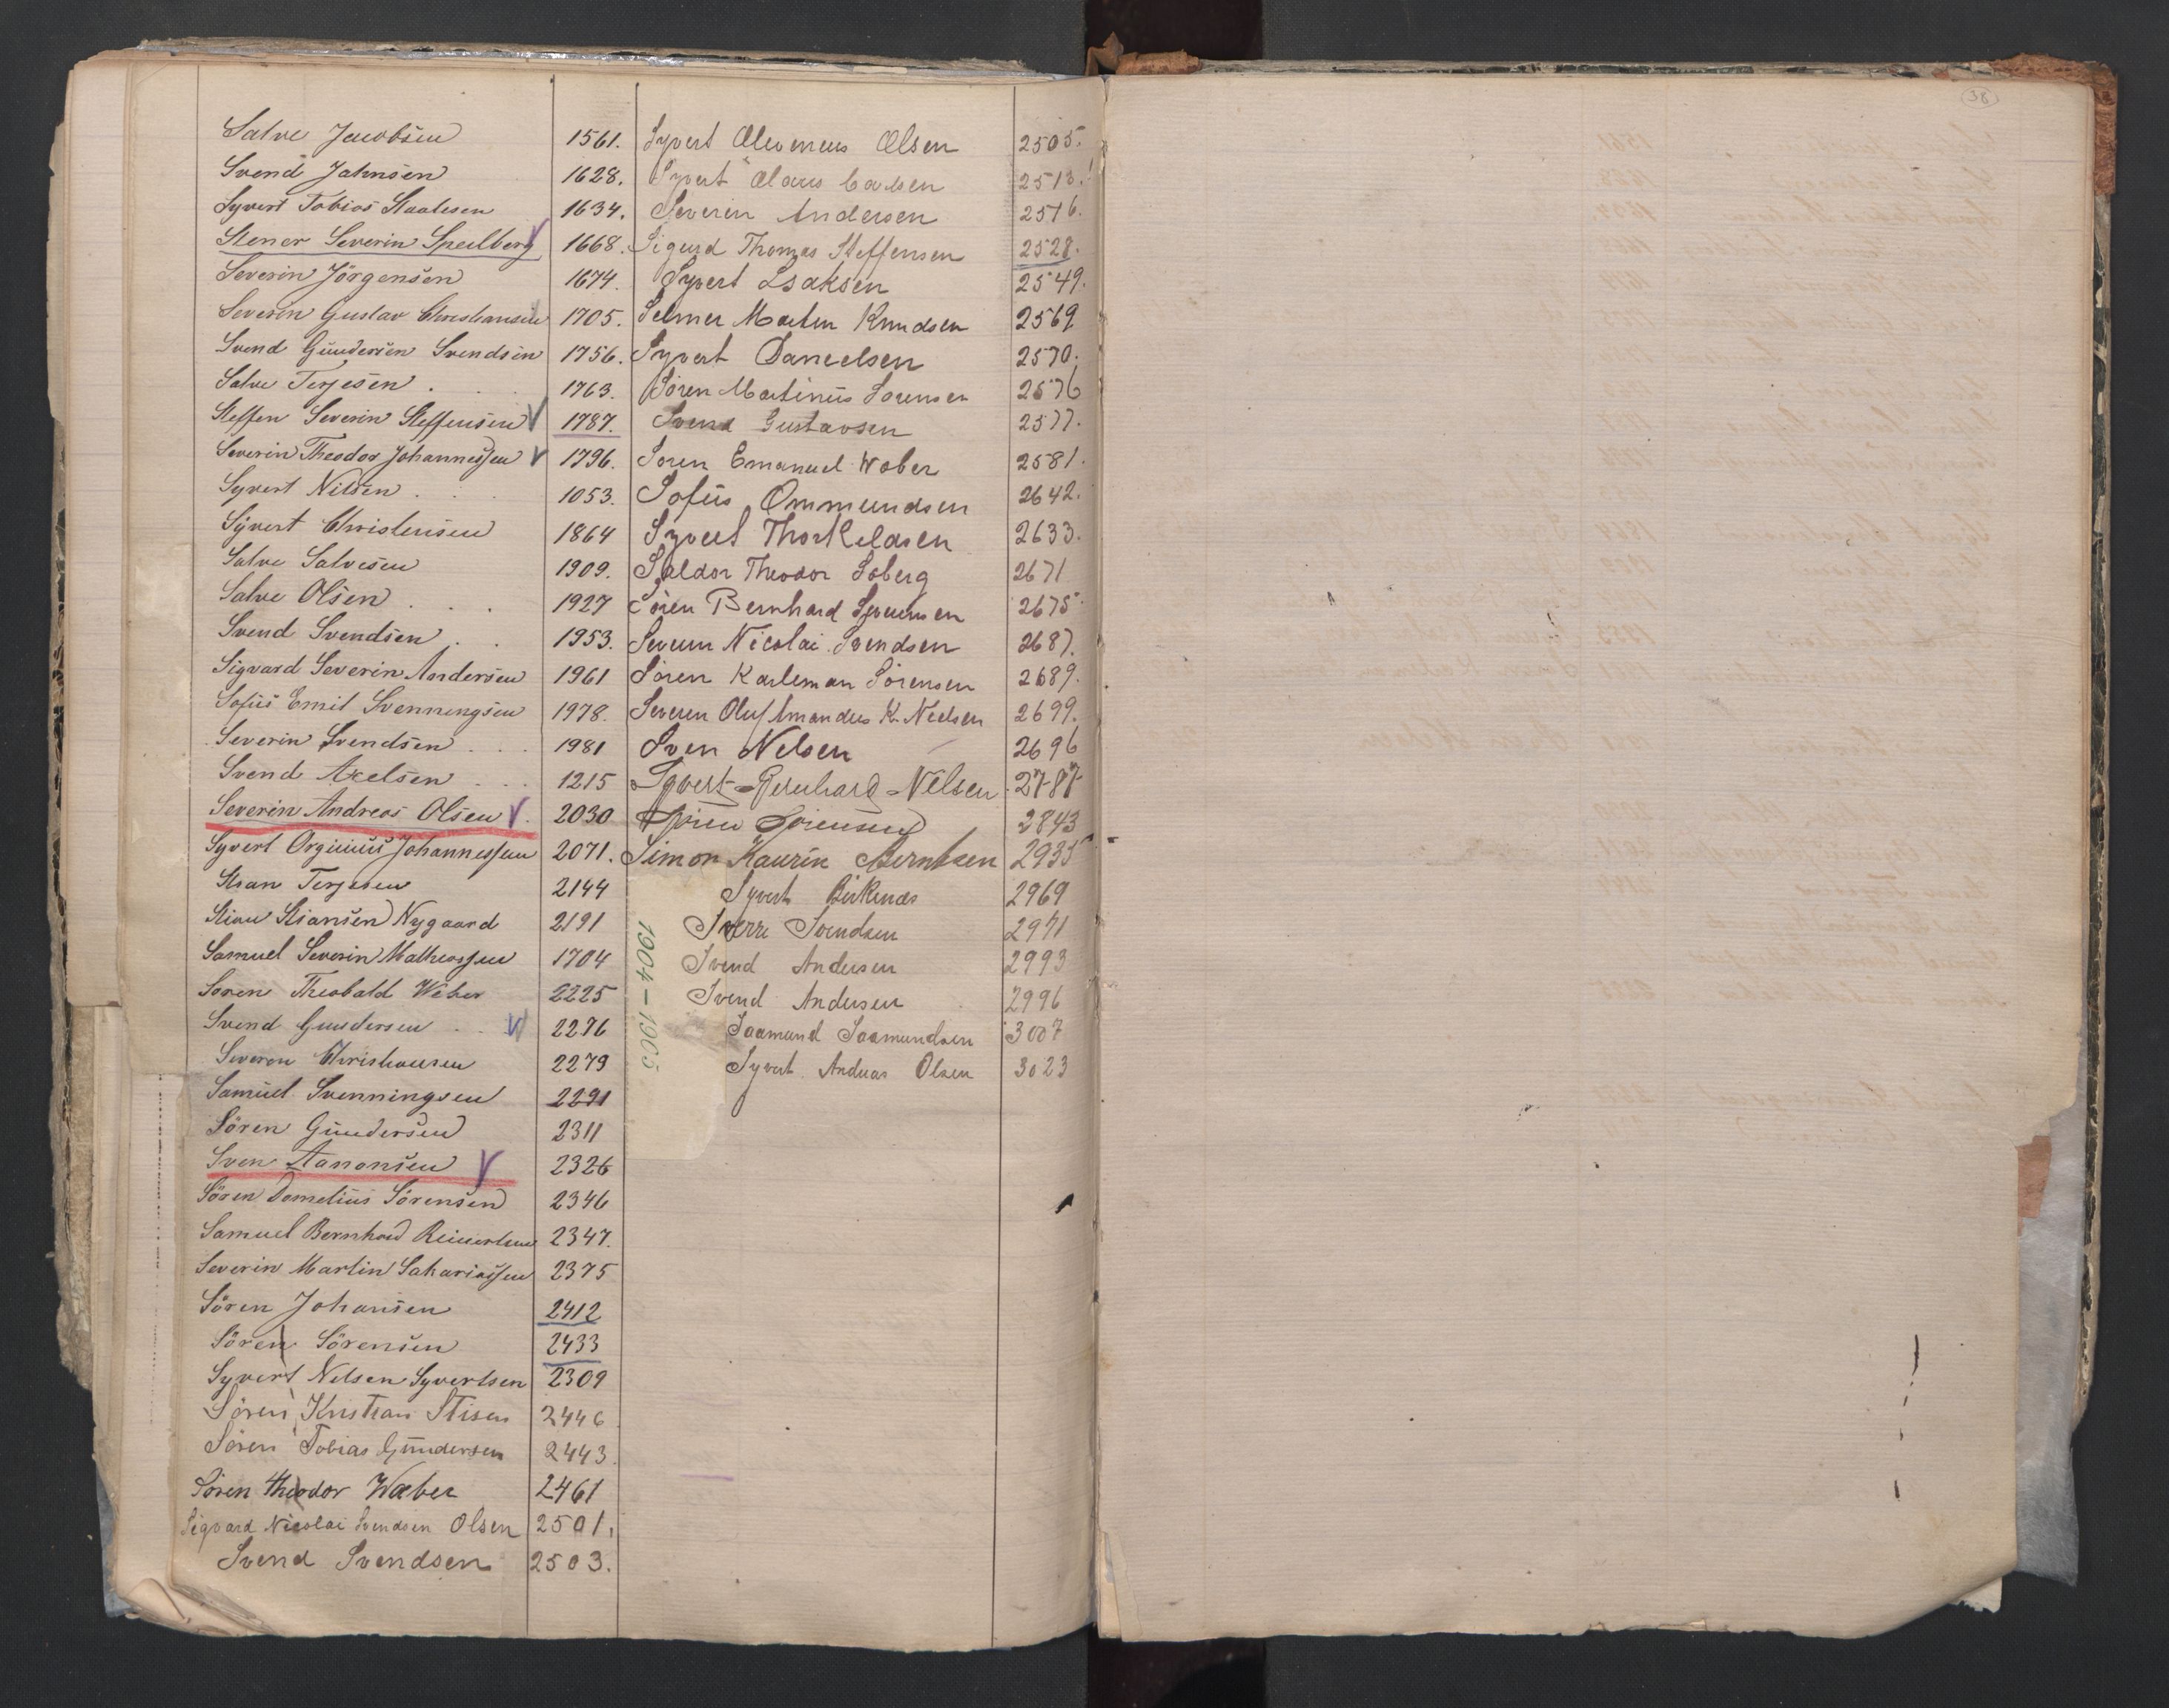 Salve Jacobsen 1561.
Svend Jahnsen 1628.
Syvert Tobias Staalesen 1634.
Stener Severin Speilberg 1668.
Severin Jörgensen 1674.
Severin Gustav Christiansen 1705.
Svend Gundersen Svendsen 1756.
Salve Terjesen . 1763.
Steffen Severin Steffensen V 1787.
Severin Theodor Johannessen V 1796.
Syvert Nilsen . . . 1053.
Syvert Christensen 1864
Salve Salvesen 1909.
Salve Olsen . . . 1927
Svend Svendsen . . 1953.
Sigvard Severin Andersen 1961
Sofus Emil Svenningsen 1978.
Severin Svendsen . . . 1981
Svend Axelsen . . . 1215
Severin Andreas Olsen V. 2030
Syvert Orginius Johannessen 2071.
Stian Terjesen 2144
Stian Stiansen Nygaard 2191
Samuel Severin Mathiassen 1704
Soren Theobald Weber 2225
Svend Gundersen . . V 2276
Severin Christiansen 2279
Samuel Svenningsen 2291
Sören Gundersen 2311
Sven Aanonsen V 2326
Sören Dometius Sörensen 2346
Samuel Bernhard Reinertsen 2347.
Severin Martin Sakariassen 2375
Sören Johansen 2412
Sören Sörensen 2433
Syvert Nelsen Syvertsen 2309
Sören Kristian Stisen 2446
Sören Tobias Gundersen 2443.
Sören Theodor Wæber 2461
Sigvard Nicolai Svendsen Olsen 2501.
Svend Svendsen 2503.
Syvert Olsen 2505.
Syvert Olaus Carlsen 2513.
Severin Andersen 2516.
Sigurd Thomas Steffensen 2528.
Syvert Isaksen 2549.
Selmer Martin Knudsen 2569
Syvert Danielsen 2570.
Sören Martinius Sorensen 2576
Svend Gustavsen 2577.
Soren Emanuel Wober 2581.
Sofus Ommundsen 2642.
Syvert Thorkeldsen 2633.
Saldor Theodor Soberg 2671
Sören Bernhard Severinsen 2675.
Severin Nicolai Svendsen 2687.
Sören Karleman Sörensen 2689.
Severin Oluf Amandus K. Nielsen 2699.
Sven Nelsen 2696
Syvert Bernhard Nilsen 2787
Sören Sörensen 2843
Simon Kaurin Berntsen 2935
Syvert Birkenæs 2969
Sverre Svendsen 2971
Svend Andersen 2993
Svend Andersen 2996
Saamund Saamundsen 3007
Syvert Andreas Olsen 3023
1904-1905
38